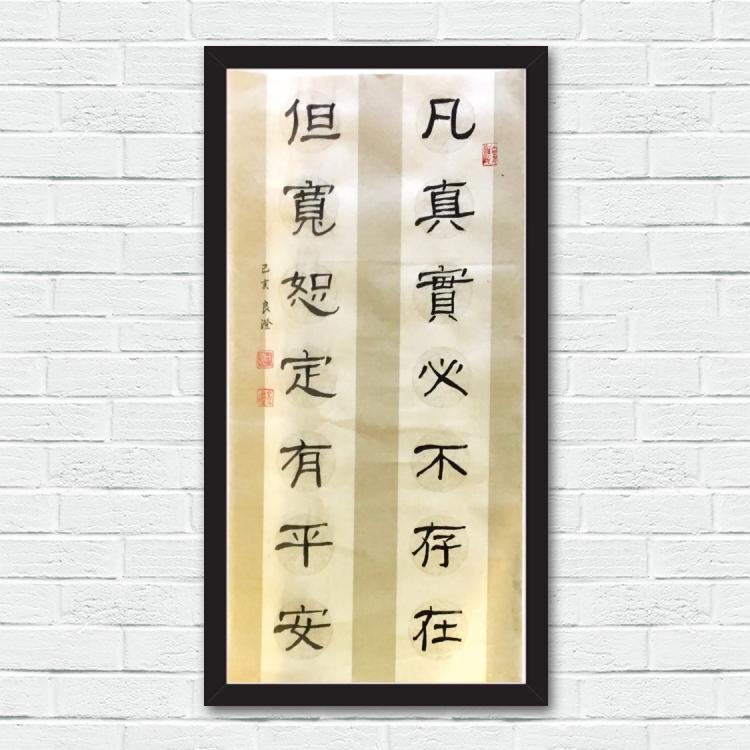 凡真實必不存在
但寬恕定有平安
己亥 良澄